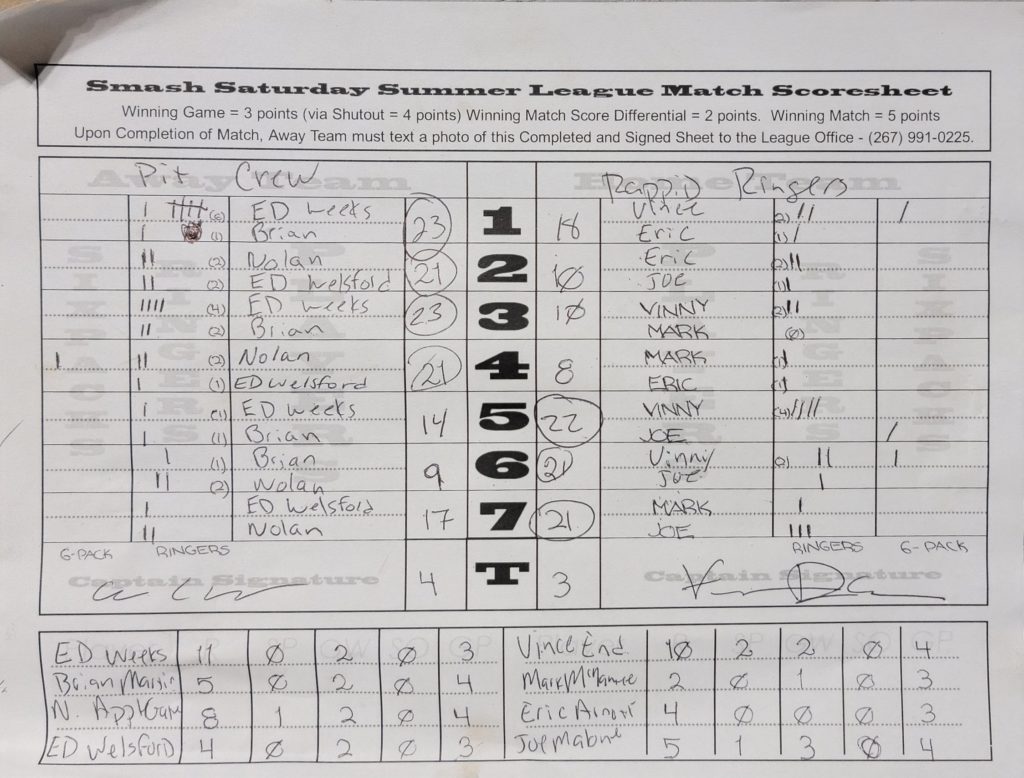 Smash Saturday Summer League Match Scoresheet
Winning Game = 3 points (via Shutout = 4 points) Winning Match Score Differential = 2 points. Winning Match = 5 points
Upon Completion of Match, Away Team must text a photo of this Completed and Signed Sheet to the League Office - (267) 991-0225.
Away Team Home Team
Pit Crew Rappid Ringers
(6) ED Weeks 23 1 18 Vince (2)
(1) Brian Eric (1)
(2) Nolan 21 2 10 Eric (2)
(2) ED Welsford JOE (1)
(4) ED Weeks 23 3 10 VINNY (2)
(2) Brian MARK (0)
(2) Nolan 21 4 8 MARK (1)
(1) ED Welsford ERIC (1)
(1) ED Weeks 14 5 22 VINNY (4)
(1) Brian JOE
(1) Brian 9 6 21 Vinny
(2) Nolan Joe
ED Welsford 17 7 21 MARK
Nolan JOE
6-PACK RINGERS RINGERS 6-PACK
Captain Signature 4 T 3 Captain Signature
SIXPACKS RINGERS PLAYERS PLAYERS RINGERS SIXPACKS
ED Weeks 11 0 2 0 3 Vince End 10 2 2 0 4
Brian 5 0 2 0 4 Mark 2 0 1 0 3
N. 8 1 2 0 4 Eric 4 0 0 0 3
ED Welsford 4 0 2 0 3 Joe 5 1 3 0 4